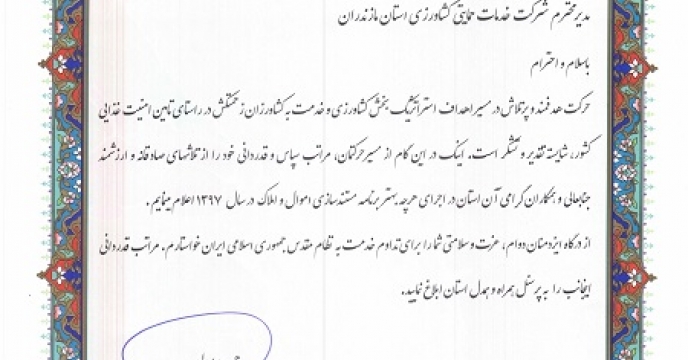 مدیر محترم شرکت خدمات حمایتی کشاورزی استان مازندران
باسلام و احترام
حرکت هدفمند و پرتلاش در مسیر اهداف استراتژیک بخش کشاورزی و خدمت به کشاورزان زحمتکش در راستای تامین امنیت غذایی
کشور، شایسته تقدیر و تشکر است. اینک در این گام از مسیر حرکتمان، مراتب سپاس و قدردانی خود را از تلاشهای صادقانه و ارزشمند
جنابعالی و همکاران گرامی آن استان در اجرای هرچه بهتر برنامه مستندسازی اموال و املاک در سال ۱۳۹۷ اعلام مینمایم.
از درگاه ایزدمنان دوام، عزت و سلامتی شما را برای تداوم خدمت به نظام مقدس جمهوری اسلامی ایران خواستارم. مراتب قدردانی
اینجانب را به پرسنل همراه و همدل استان ابلاغ نمایید.